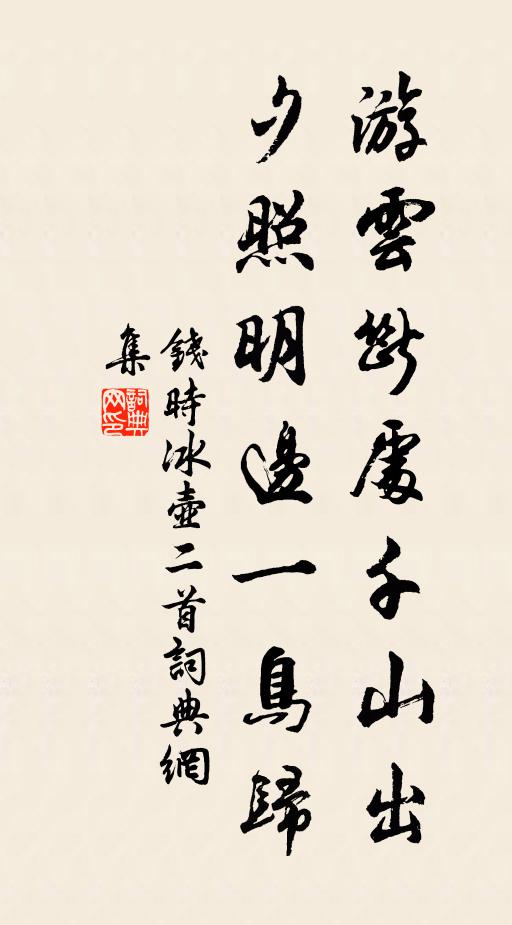 游雲斷處千山出
夕照明邊一鳥歸
錢時冰壺二首詞典網
集
詞典
网印